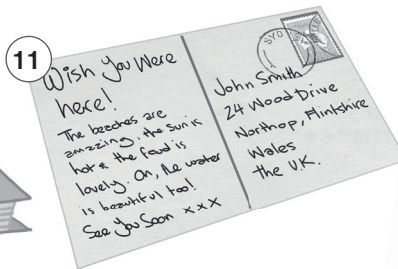 11
Wish You Were
here!
The beaches are
amazing, the sun is
hot & the food is
lovely. Oh, the water
is beautiful too!
See You Soon xxx
SYD
John Smith
24 Wood Drive
Northop, Flintshire
Wales
The U.K.